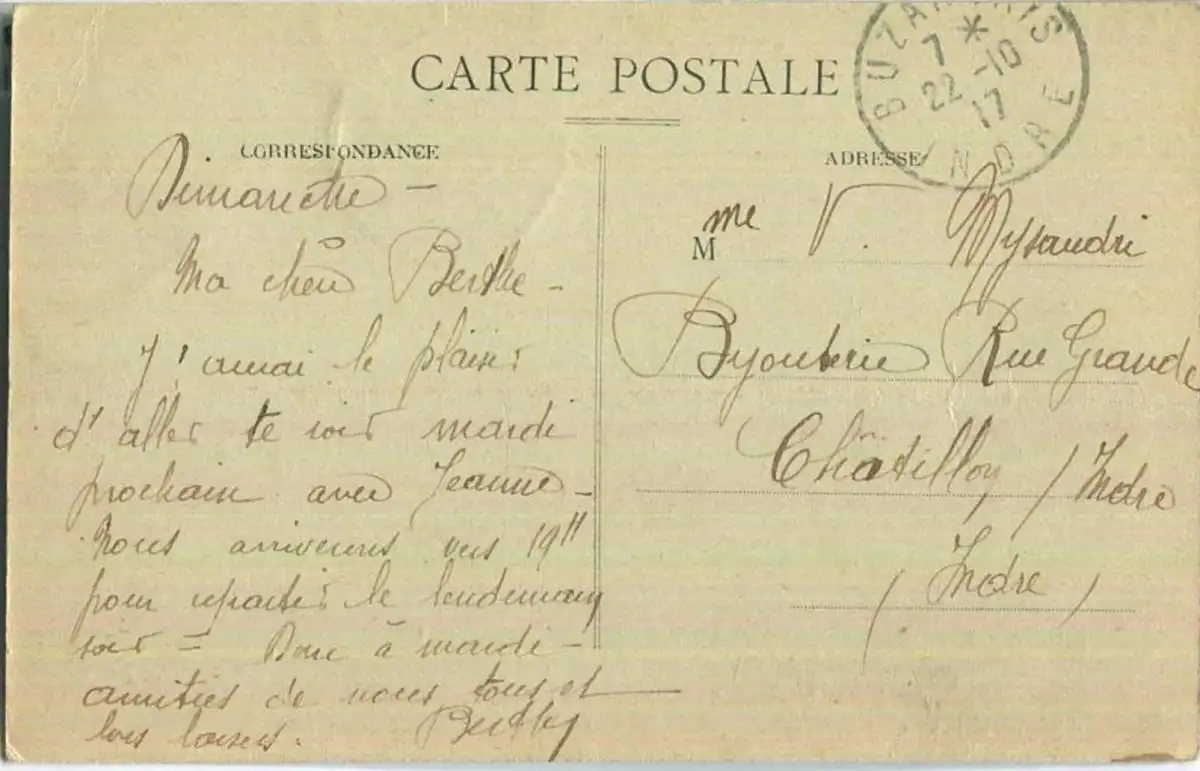 CARTE POSTALE
BUZANÇAIS
7 *
22 -10
17
INDRE
CORRESPONDANCE
ADRESSE
Dimanche -
Ma chère Berthe -
J'aurai le plaisir
d'aller te voir mardi
prochain avec Jeanne -
Nous arriverons vers 19h
pour repartir le lendemain
soir = Donc à mardi -
amitiés de nous tous et
bons baisers.
Mme V.
Bijouterie Rue Grande
Châtillon / Indre
( Indre )